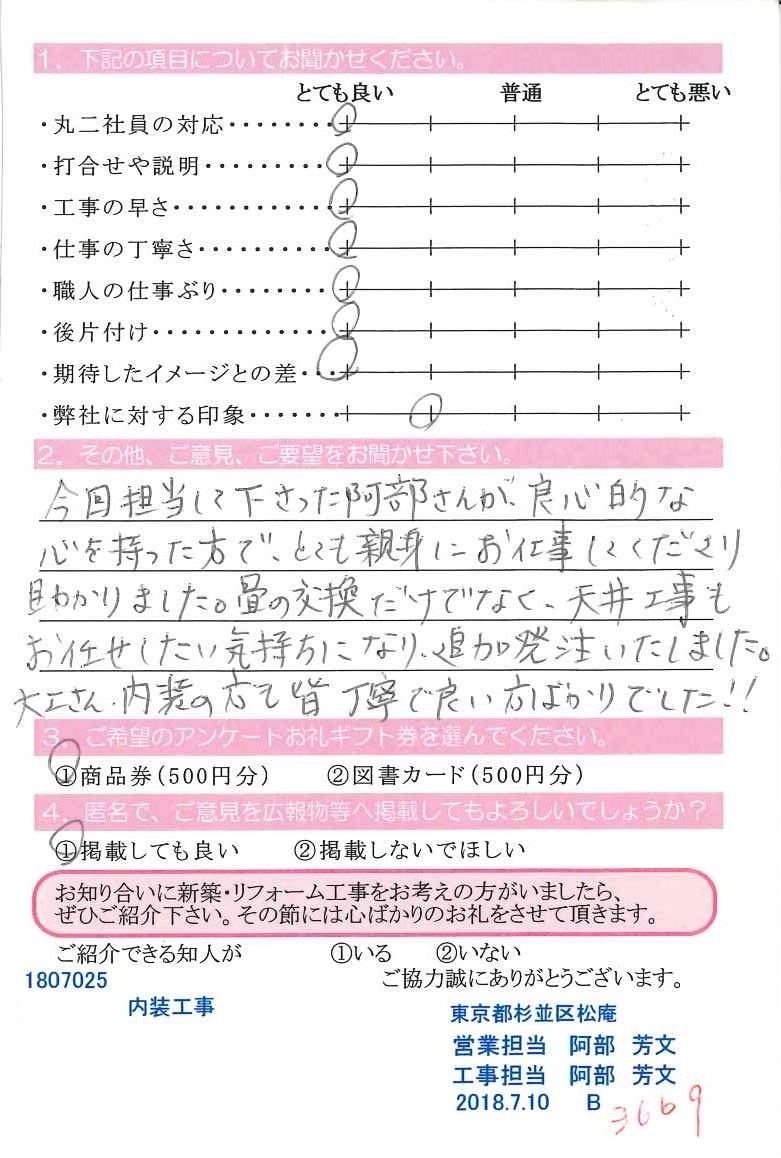 1．下記の項目についてお聞かせください。
とても良い 普通 とても悪い
・丸二社員の対応・・・・・・・・
・打合せや説明・・・・・・・・・
・工事の早さ・・・・・・・・・・・・
・仕事の丁寧さ・・・・・・・・・・
・職人の仕事ぶり・・・・・・・・
・後片付け・・・・・・・・・・・・・
・期待したイメージとの差・・・
・弊社に対する印象・・・・・・
2．その他、ご意見、ご要望をお聞かせ下さい。
今回担当して下さった阿部さんが、良心的な
心を持った方で、とても親身にお仕事してくださり
助かりました。畳の交換だけでなく、天井工事も
お任せしたい気持ちになり、追加発注いたしました。
大工さん、内装の方も皆丁寧で良い方ばかりでした!!
3．ご希望のアンケートお礼ギフト券を選んでください。
①商品券(500円分) ②図書カード(500円分)
4．匿名で、ご意見を広報物等へ掲載してもよろしいでしょうか？
①掲載しても良い ②掲載しないでほしい
お知り合いに新築・リフォーム工事をお考えの方がいましたら、
ぜひご紹介下さい。その節には心ばかりのお礼をさせて頂きます。
ご紹介できる知人が ①いる ②いない
1807025 ご協力誠にありがとうございます。
内装工事 東京都杉並区松庵
営業担当 阿部 芳文
工事担当 阿部 芳文
2018.7.10 B 3669